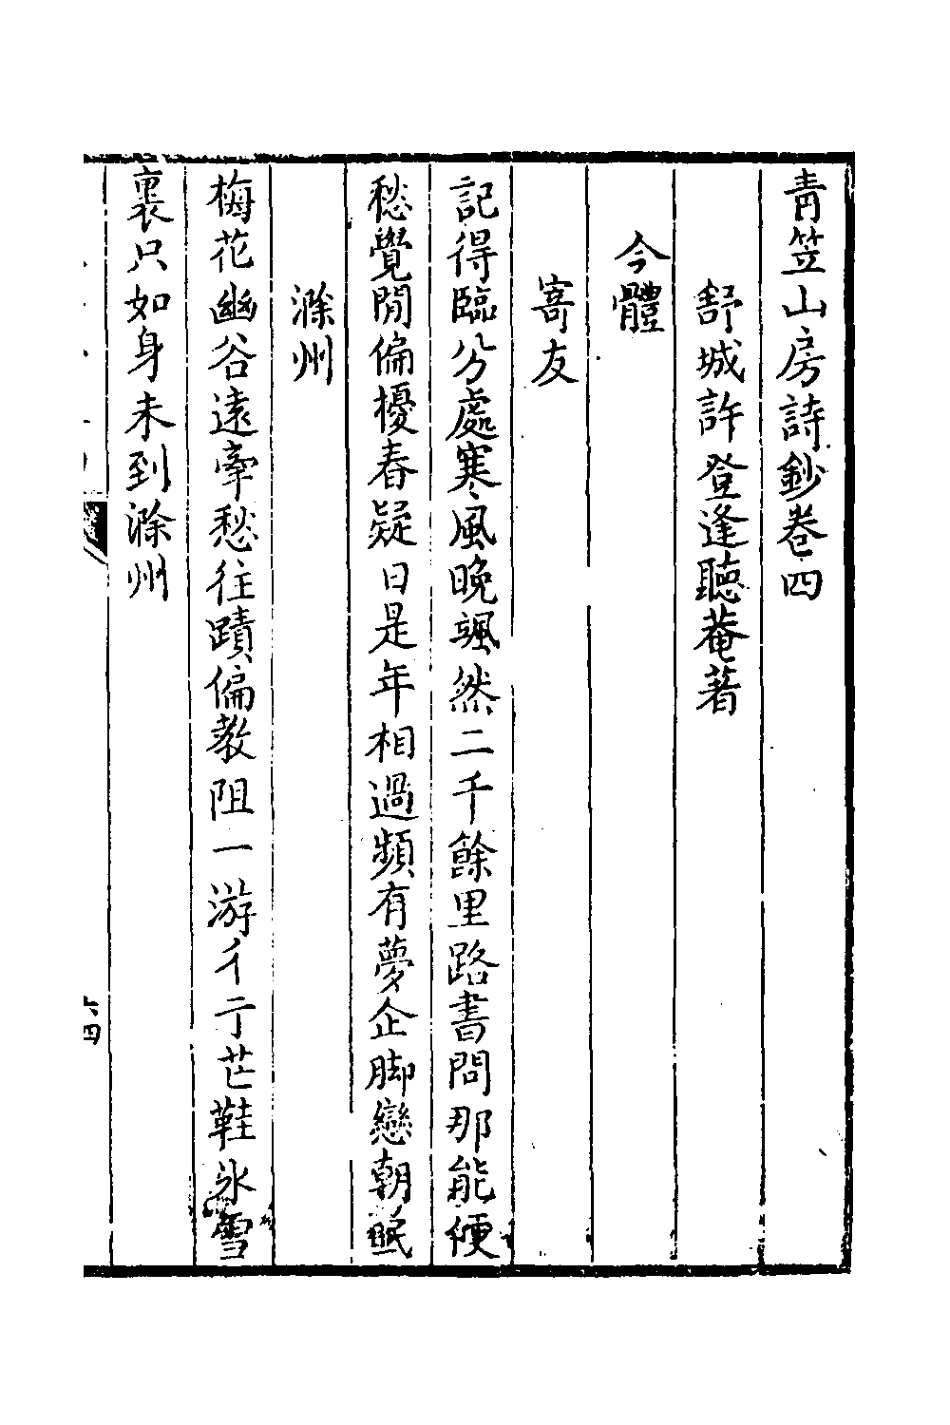 青笠山房詩鈔卷四
舒城許登逢聽菴著
今體
寄友
記得臨分處寒風晚颯然二千餘里路書問那能便
愁覺閒偏擾春疑日是年相過頻有夢企腳戀朝眠
滁州
梅花幽谷遠牽愁往蹟偏教阻一游彳亍芒鞋氷雪
裏只如身未到滁州